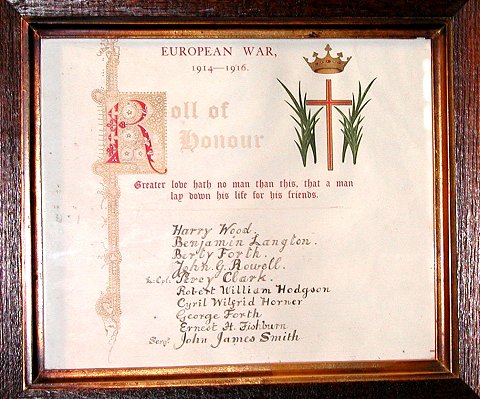 EUROPEAN WAR,
1914—1916.
Roll of
Honour
Greater love hath no man than this, that a man
lay down his life for his friends.
Harry Wood.
Benjamin Langton.
Berty Forth.
John. G. Rowell.
L. Cpl. Percy Clark.
Robert William Hodgson
Cyril Wilfrid Horner
George Forth
Ernest H. Fishburn
Sergt John James Smith